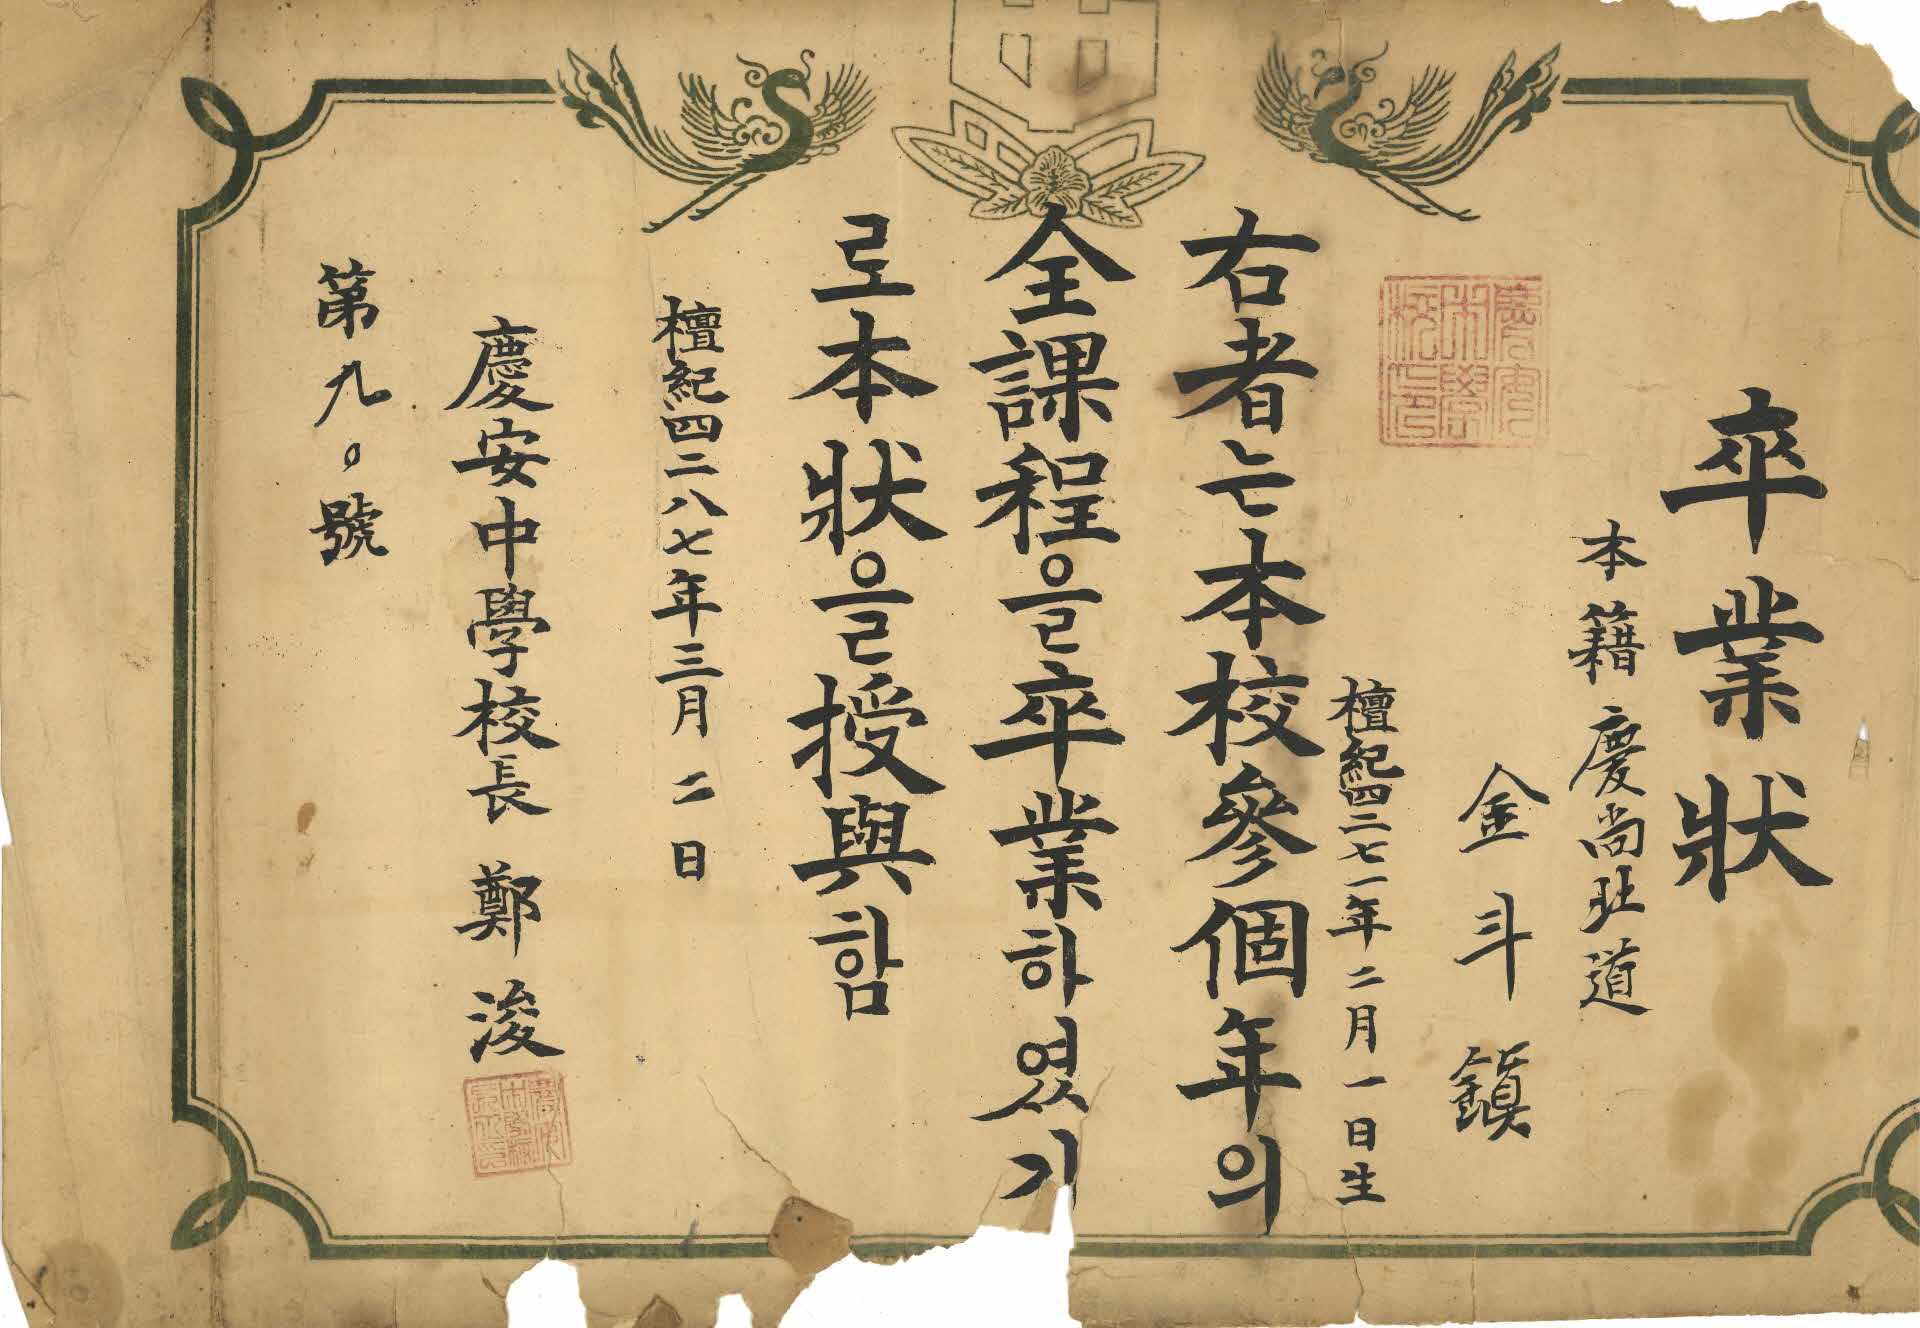 卒業狀
本籍 慶尚北道
金斗鎭
檀紀四二七一年二月一日生
右者는本校參個年의
全課程을卒業하였기
로本狀을授與함
檀紀四二八七年三月二日
慶安中學校長 鄭浚
第九〇號
慶安中學校印